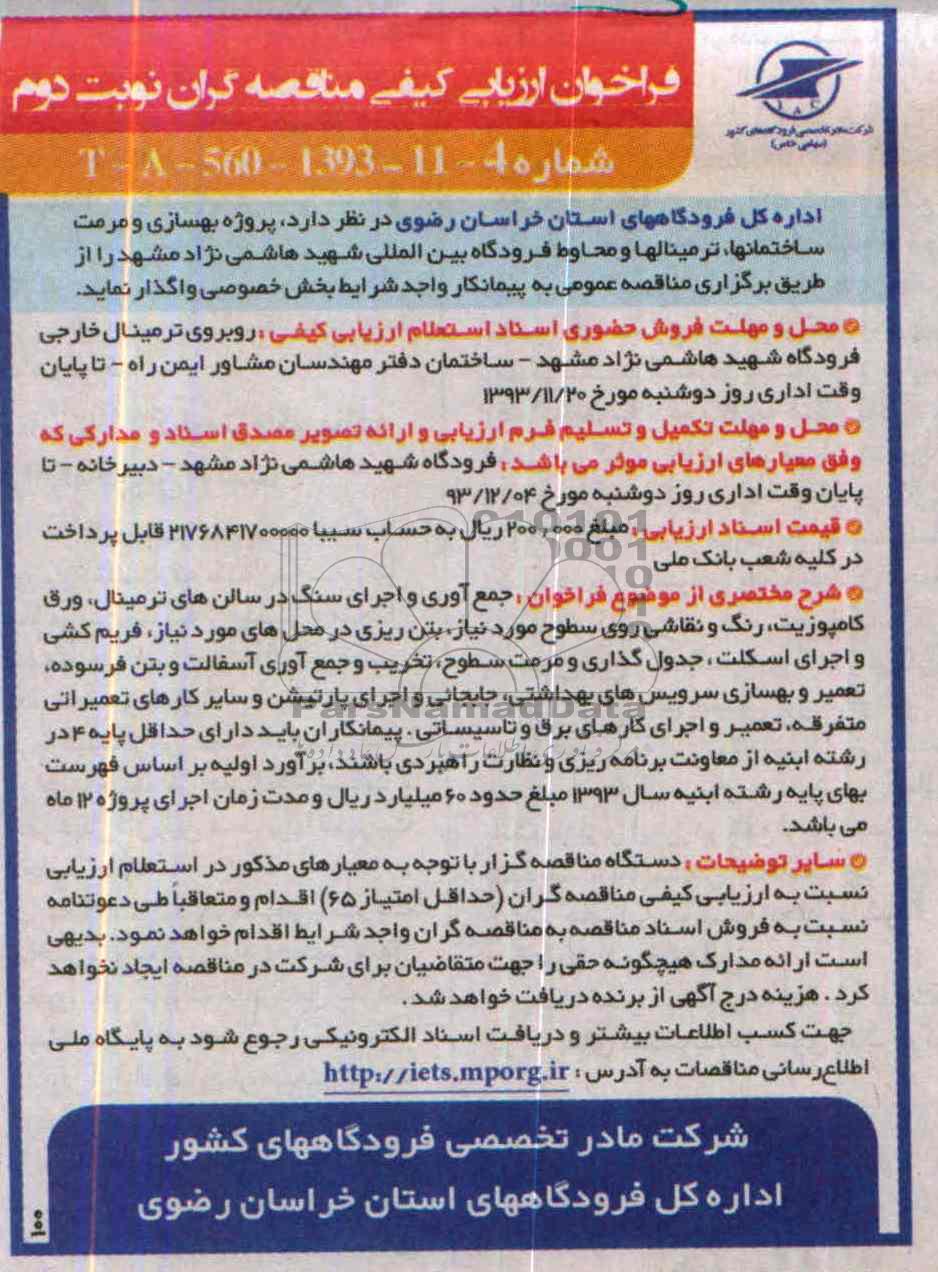 فراخوان ارزیابی کیفی مناقصه گران نوبت دوم
شماره 4 - 11 - 1393 - 560 - T - A
I A C
شرکت مادر تخصصی فرودگاههای کشور
(سهامی خاص)
اداره کل فرودگاههای استان خراسان رضوی در نظر دارد، پروژه بهسازی و مرمت
ساختمانها، ترمینالها و محاوط فرودگاه بین المللی شهید هاشمی نژاد مشهد را از
طریق برگزاری مناقصه عمومی به پیمانکار واجد شرایط بخش خصوصی واگذار نماید.
محل و مهلت فروش حضوری اسناد استعلام ارزیابی کیفی : روبروی ترمینال خارجی
فرودگاه شهید هاشمی نژاد مشهد - ساختمان دفتر مهندسان مشاور ایمن راه - تا پایان
وقت اداری روز دوشنبه مورخ ۱۳۹۳/۱۱/۲۰
محل و مهلت تکمیل و تسلیم فرم ارزیابی و ارائه تصویر مصدق اسناد و مدارکی که
وفق معیارهای ارزیابی موثر می باشد : فرودگاه شهید هاشمی نژاد مشهد - دبیرخانه - تا
پایان وقت اداری روز دوشنبه مورخ ۹۳/۱۲/۰۴
قیمت اسناد ارزیابی : مبلغ ۲۰۰,۰۰۰ ریال به حساب سیبا ۲۱۷۶۸۴۱۷۰۰۰۰۰ قابل پرداخت
در کلیه شعب بانک ملی
شرح مختصری از موضوع فراخوان : جمع آوری و اجرای سنگ در سالن های ترمینال، ورق
کامپوزیت، رنگ و نقاشی روی سطوح مورد نیاز، بتن ریزی در محل های مورد نیاز، فریم کشی
و اجرای اسکلت ، جدول گذاری و مرمت سطوح، تخریب و جمع آوری آسفالت و بتن فرسوده،
تعمیر و بهسازی سرویس های بهداشتی، جابجائی و اجرای پارتیشن و سایر کارهای تعمیراتی
متفرقه، تعمیر و اجرای کارهای برق و تاسیساتی . پیمانکاران باید دارای حداقل پایه ۴ در
رشته ابنیه از معاونت برنامه ریزی و نظارت راهبردی باشند، برآورد اولیه بر اساس فهرست
بهای پایه رشته ابنیه سال ۱۳۹۳ مبلغ حدود ۶۰ میلیارد ریال و مدت زمان اجرای پروژه ۱۲ ماه
می باشد.
سایر توضیحات : دستگاه مناقصه گزار با توجه به معیارهای مذکور در استعلام ارزیابی
نسبت به ارزیابی کیفی مناقصه گران (حداقل امتیاز ۶۵) اقدام و متعاقباً طی دعوتنامه
نسبت به فروش اسناد مناقصه به مناقصه گران واجد شرایط اقدام خواهد نمود. بدیهی
است ارائه مدارک هیچگونه حقی را جهت متقاضیان برای شرکت در مناقصه ایجاد نخواهد
کرد . هزینه درج آگهی از برنده دریافت خواهد شد .
جهت کسب اطلاعات بیشتر و دریافت اسناد الکترونیکی رجوع شود به پایگاه ملی
اطلاع رسانی مناقصات به آدرس : http://iets.mporg.ir
شرکت مادر تخصصی فرودگاههای کشور
اداره کل فرودگاههای استان خراسان رضوی
۱۰۰
ParsNamadData